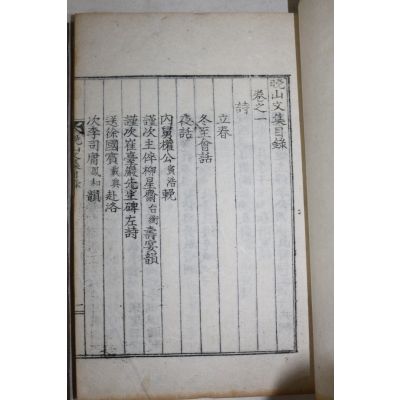 晩山文集目錄
卷之一
詩
立春
冬至會話
夜話
內舅權公寅浩輓
謹次主倅柳星齋台衡壽宴韻
謹次崔臺巖先生碑左詩
送徐國賓戴奥赴洛
次李司庸鳳和韻
晩山文集目錄
一